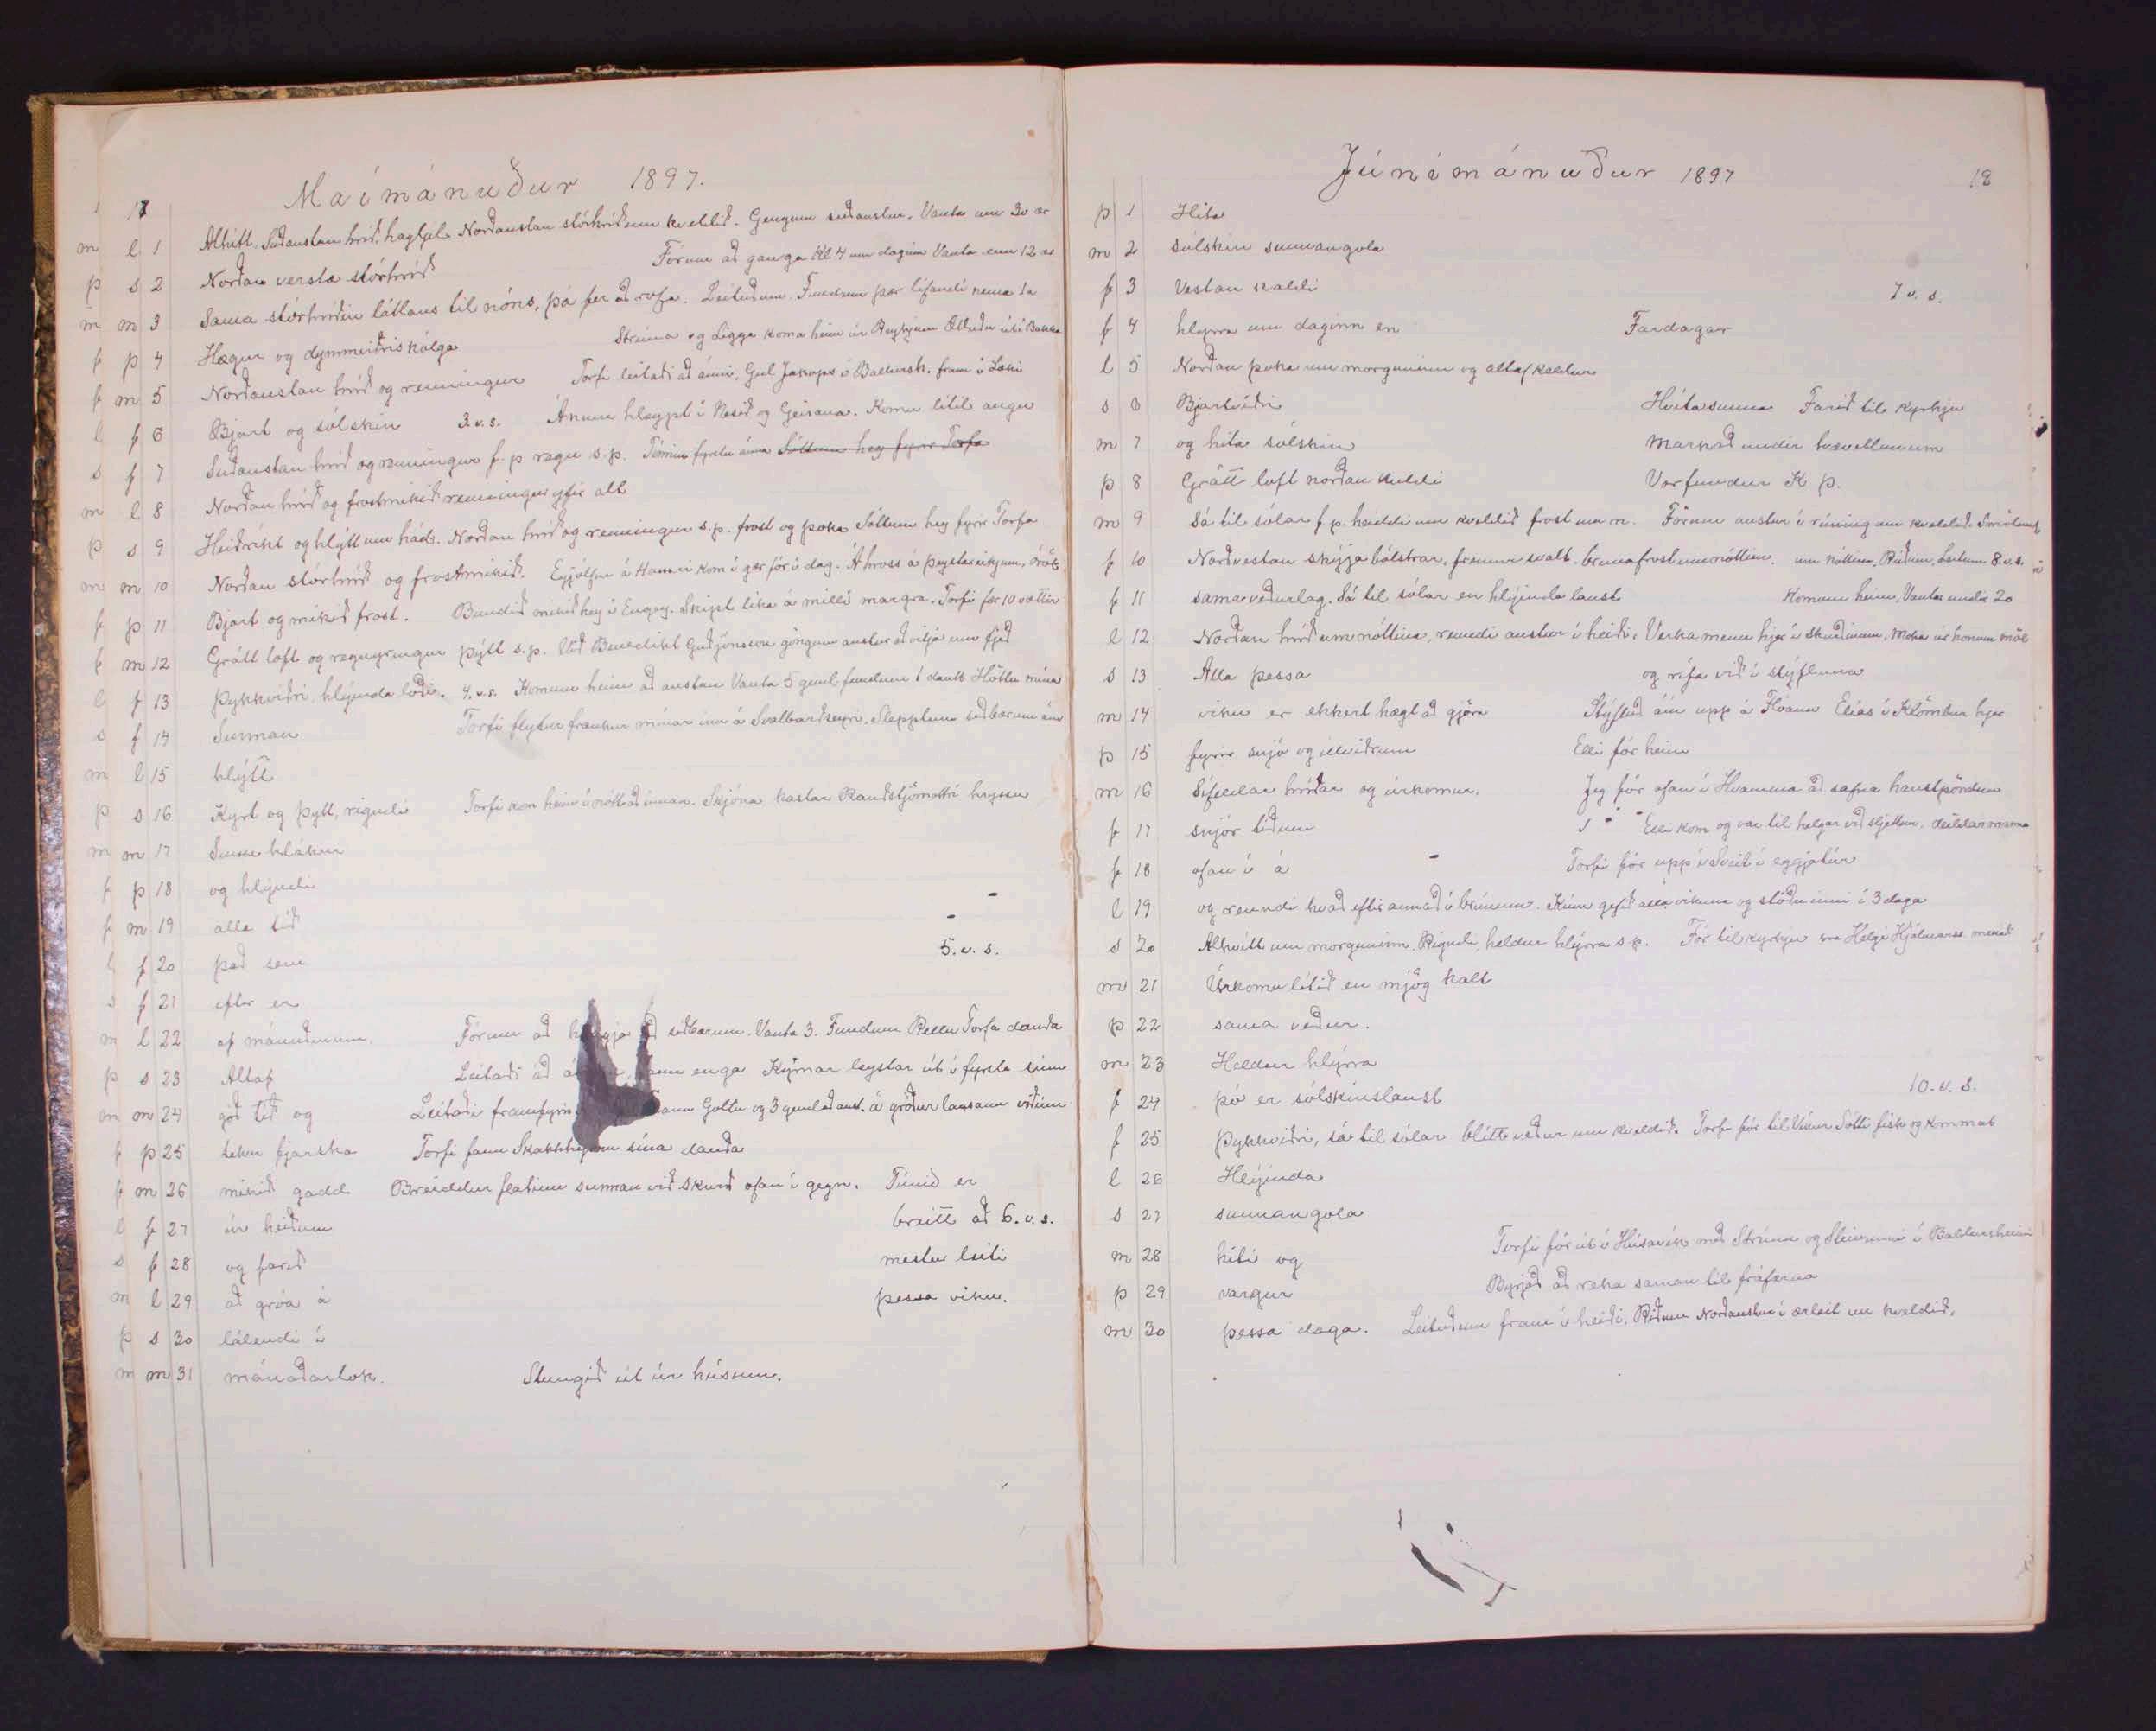 17
Maímánuður 1897.
m l 1 Alhvítt. Suðaustan hríð, hagljel. Norðaustan stórhríð um kveldið. Gengum suðaustur. Vanta um 30 ær
þ s 2 Norðan versta stórhríð Fórum að ganga Kl 4 um daginn Vanta enn 12 ær
m m 3 Sama stórhríðin látlaus til nóns, þá fer að rofa. Leituðum. Fundum þær lifandi nema 1a
f þ 4 Hægur og dymmviðriskólga Strúna og Sigga koma heim úr
f m 5 Norðaustan hríð og renningur Torfi leitaði að ánni,
l f 6 Bjart og sólskin 3. v. s. Ánum hleypt í Nesið og Geirana. Komu lítil augu
s f 7 Suðaustan hríð og renningur f. p regn s. p. Tínum fyrstu ána Sóttum hey fyrir Torfa
m l 8 Norðan hríð og frostmikið renningur yfir alt
þ s 9 Heiðríkt og hlýtt um hád. Norðan hríð og renningur s. p. frost og þoka Sóttum hey fyrir Torfa
m m 10 Norðan stórhríð og frostmikið. Eyjólfur á Hamri kom í gær fór í dag. Á hross á þeystareykjum,
f þ 11 Bjart og mikið frost. Bundið mikið hey í Engey. Skipt líka á milli margra. Torfi fær 10 vættir
f m 12 Grátt loft og regnyringur þýtt s. p. Við Benedikt Guðjónsson göngum austur að vitja um fjeð
l f 13 Þykkviðri, hlýinda loði. 4. v. s. Komum heim að austan Vanta 5 geml. fundum 1 dauð Höttu mína
s f 14 Sunnan Torfi flytur frænkur mínar inn á Svalbarðseyri. Slepptum síðbærum ám
m l 15 hlýtt
þ s 16 Kyrt og þytt, rigndi Torfi kom heim í nótt að innan. Skjóna kastar Rauðstjörnóttri hryssu
m m 17 Sunnan hlákur
f þ 18 og hlýindi
f m 19 alla tíð
l f 20 það sem 5. v. s.
s f 21 eftir er
m l 22 af mánuðinum. Fórum að síðbærum. Vanta 3. Fundum Rellu Torfa dauða
þ s 23 Altaf Leitaði að enga Kýrnar leystar út í fyrsta sinn
m m 24 góð tíð og Leitaði framfyrir Goltu og 3 gemlað aust. á gróður lausann viðinn
f þ 25 tekur fjarska Torfi fann sína dauða
f m 26 mikið gadd Breiddur flatinn sunnan við skurð ofan í gegn. Túnið er
l f 27 úr heiðum breitt að 6. v. s.
s f 28 og farið mestu leiti
m l 29 að gróa á þessa viku.
þ s 30 lálendi í
m m 31 mánaðarlok. Stungið út úr húsum.
18
Júnímánuður 1897
þ 1 Hita
m 2 sólskin sunnangola
f 3 Vestan kaldi 7 v. s.
f 4 hlyrra um daginn en Fardagar
l 5 Norðan þoka um morguninn og altaf kaldur
s 6 Bjartviðri Hvítasunna Farið til kyrkju
m 7 og hita sólskin Markað undir
þ 8 Grátt loft norðan kuldi Vorfundur K þ.
m 9 Sá til sólar f. p. heiddi um kveldið frost um n. Fórum austur í rúning um kveldið.
f 10 Norðvestan skýjabólstrar, fremur svalt. brunafrost um nóttina. um nóttina. Riðum, Leitum 8. v. s.
f 11 sama veðurlag. Sá til sólar en hlýinda laust Komum heim, Vanta undir 20
l 12 Norðan hríð um nóttina, renndi austur í heiði. Verka menn hjer í skurðinum. Moka úr honum möl
s 13 Alla þessa og rífa við í stýfluna
m 14 viku er ekkert hægt að gjöra Stýfluð áin upp á Flóann Elías í Klömbur hjer
þ 15 fyrir snjó og illviðrum Elli fór heim
m 16 Sífeldar hríðar og úrkomur. Jeg fór ofan í Hvamma að safna haustpöndum
f 17 snjór tíðum Elli kom og var til helgar við sljettun,
f 18 ofan í á Torfi fór upp í Sveit í eggjatúr
l 19 og renndi hvað eftir annað í brúnum. Kúm gefið alla vikuna og stóðu inni í 3 daga
s 20 Alhvítt um morguninn. Rigndi, heldur hlýrra s p. Fór til kyrkju Helgi Hjálmarss. messað
m 21 Úrkomu lítið en mjög kalt
þ 22 sama veður.
m 23 Heldur hlýrra
f 24 þó er sólskinslaust 10. v. s.
f 25 Þykkviðri, sá til sólar blítt veður um kveldið. Torfi fór til Víkur Sótti fisk og kornmat
l 26 Hlýinda
s 27 sunnangola
m 28 hiti og Torfi fór út í Húsavík með Strúnu og Steinunni í Baldursheimi
þ 29 vargur Byrjað að reka saman til fráfærna
m 30 þessa daga. Leituðum fram í heiði. Riðum Norðaustur í ærleit um kveldið.